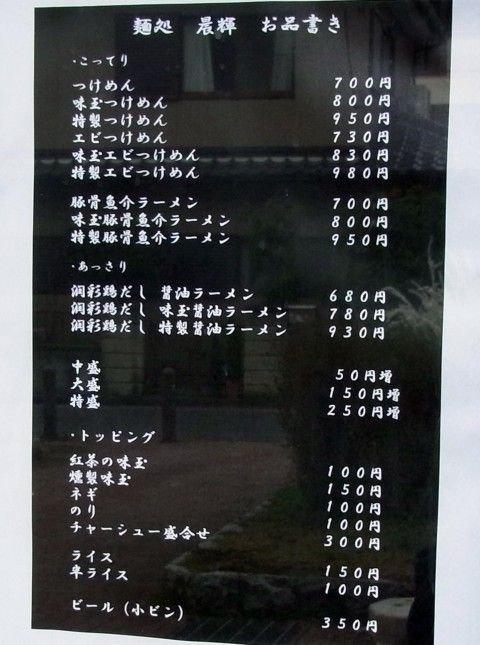 麺処 晨輝 お品書き
・こってり
つけめん 700円
味玉つけめん 800円
特製つけめん 950円
エビつけめん 730円
味玉エビつけめん 830円
特製エビつけめん 980円
豚骨魚介ラーメン 700円
味玉豚骨魚介ラーメン 800円
特製豚骨魚介ラーメン 950円
・あっさり
潤彩鶏だし 醤油ラーメン 680円
潤彩鶏だし 味玉醤油ラーメン 780円
潤彩鶏だし 特製醤油ラーメン 930円
中盛 50円増
大盛 150円増
特盛 250円増
・トッピング
紅茶の味玉 100円
燻製味玉 150円
ネギ 100円
のり 100円
チャーシュー盛合せ 300円
ライス 150円
半ライス 100円
ビール(小ビン) 350円